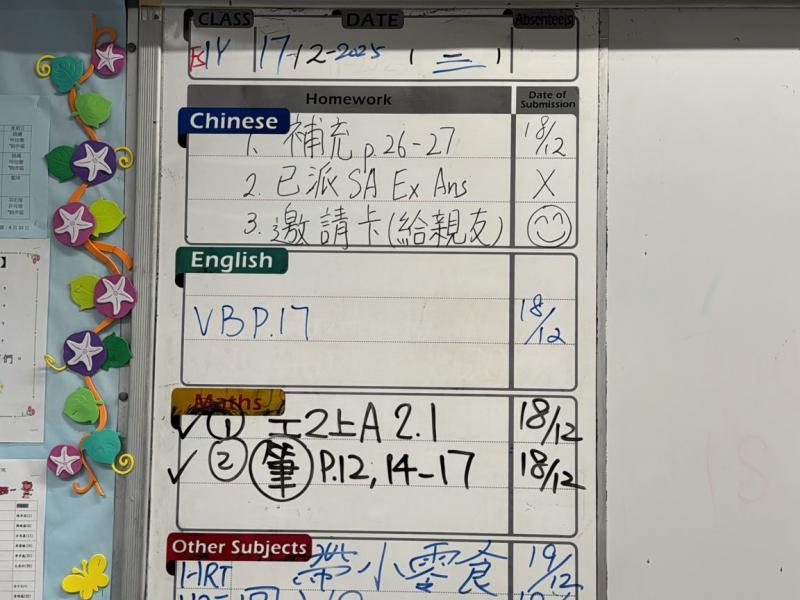 CLASS DATE Absentee(s)
1Y 17-12-2025 (三)
Homework Date of Submission
Chinese
1. 補充 p.26-27 18/12
2. 已派 SA Ex Ans X
3. 邀請卡(給親友)
English
VB P.17 18/12
Maths
✓ ① 工2上A 2.1 18/12
✓ ② 筆 P.12, 14-17 18/12
Other Subjects
HRT 帶小零食 19/12